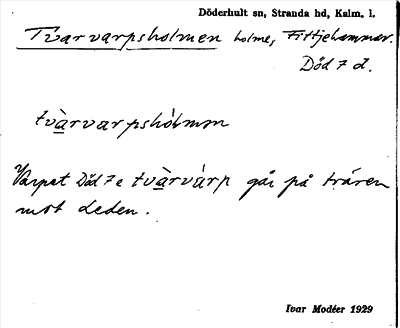 Döderhult sn, Stranda hd, Kalm. l.
Tvarvarpsholmen holme, Fittjehammar.
Död 7 d.
tvàrvarpshòlmən
Varpet Död 7 e tvàrvàrp går på tvären
mot leden.
Ivar Modéer 1929